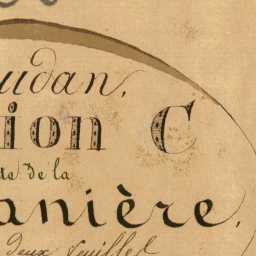 udan,
ion C
te de la
anière,
deux feuilles